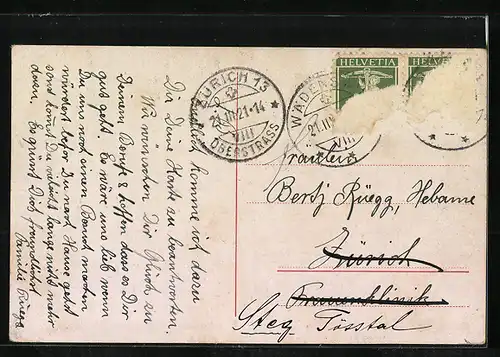 Endlich komme ich dazu
Dir Deine Karte zu beantworten.
Wir wünschen Dir Glück zu
Deinem Berufe & hoffen dass es Dir
gut geht. Es wäre uns lieb wenn
Du uns noch einen Besuch machen
würdest bevor Du nach Hause gehst
sonst komst Du vieleicht lange nicht mehr
dazu. Es grüsst Dich freundlichst
Familie Rüegg
HELVETIA HELVETIA
ZÜRICH 13
21.III.21-14
VIII
OBERSTRASS
WÄDENS
21.III
VIII
Fräulein
Bertj Rüegg, Hebamme
Zürich
Frauenklinik
Steg Tösstal